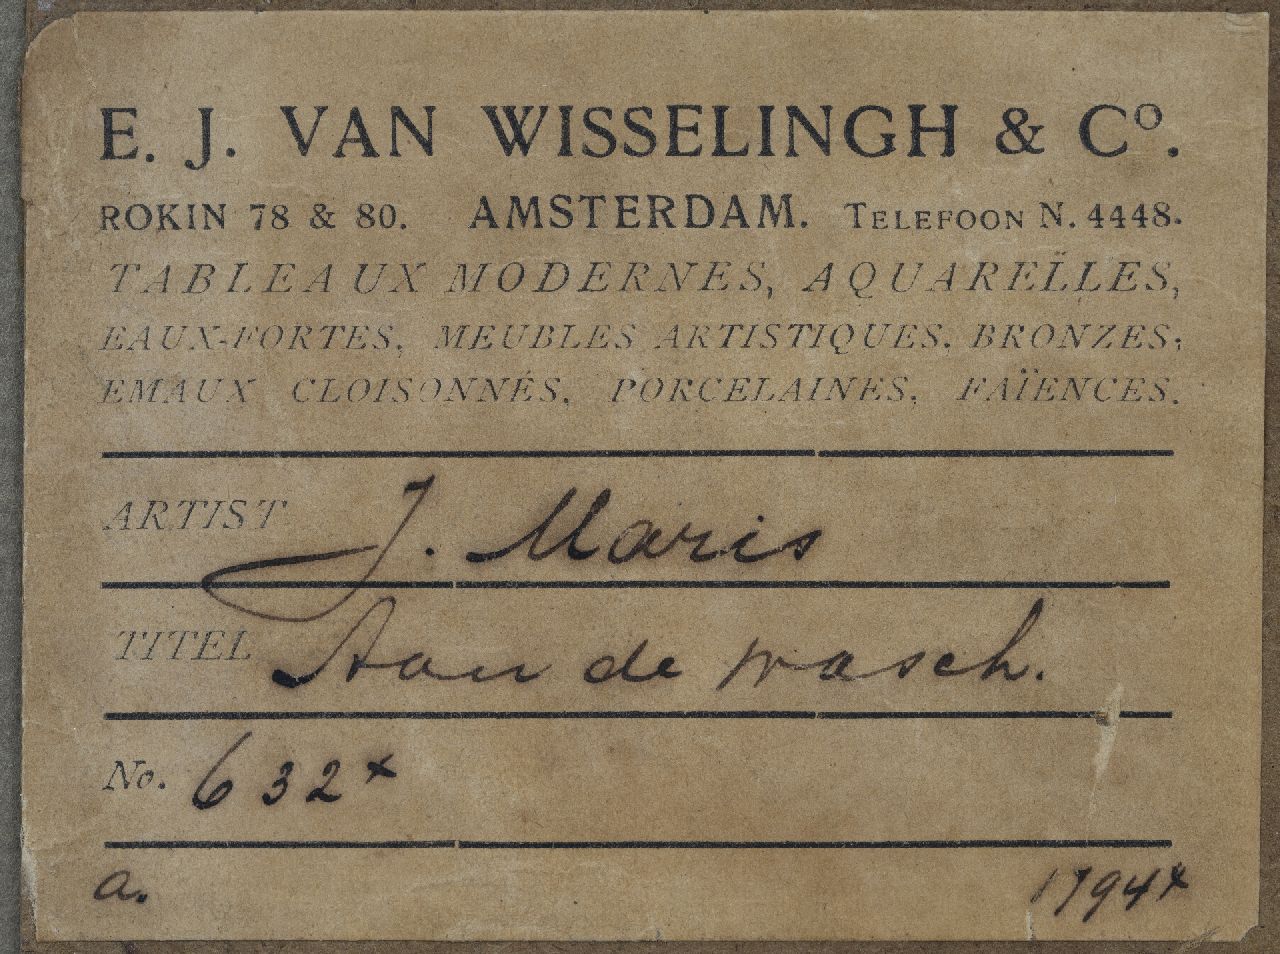 E. J. VAN WISSELINGH & Cº.
ROKIN 78 & 80. AMSTERDAM. TELEFOON N. 4448.
TABLEAUX MODERNES, AQUARELLES,
EAUX-FORTES, MEUBLES ARTISTIQUES, BRONZES,
EMAUX CLOISONNÉS, PORCELAINES, FAÏENCES.
ARTIST J. Maris
TITEL Aan de wasch.
No. 632x
a. 1794x